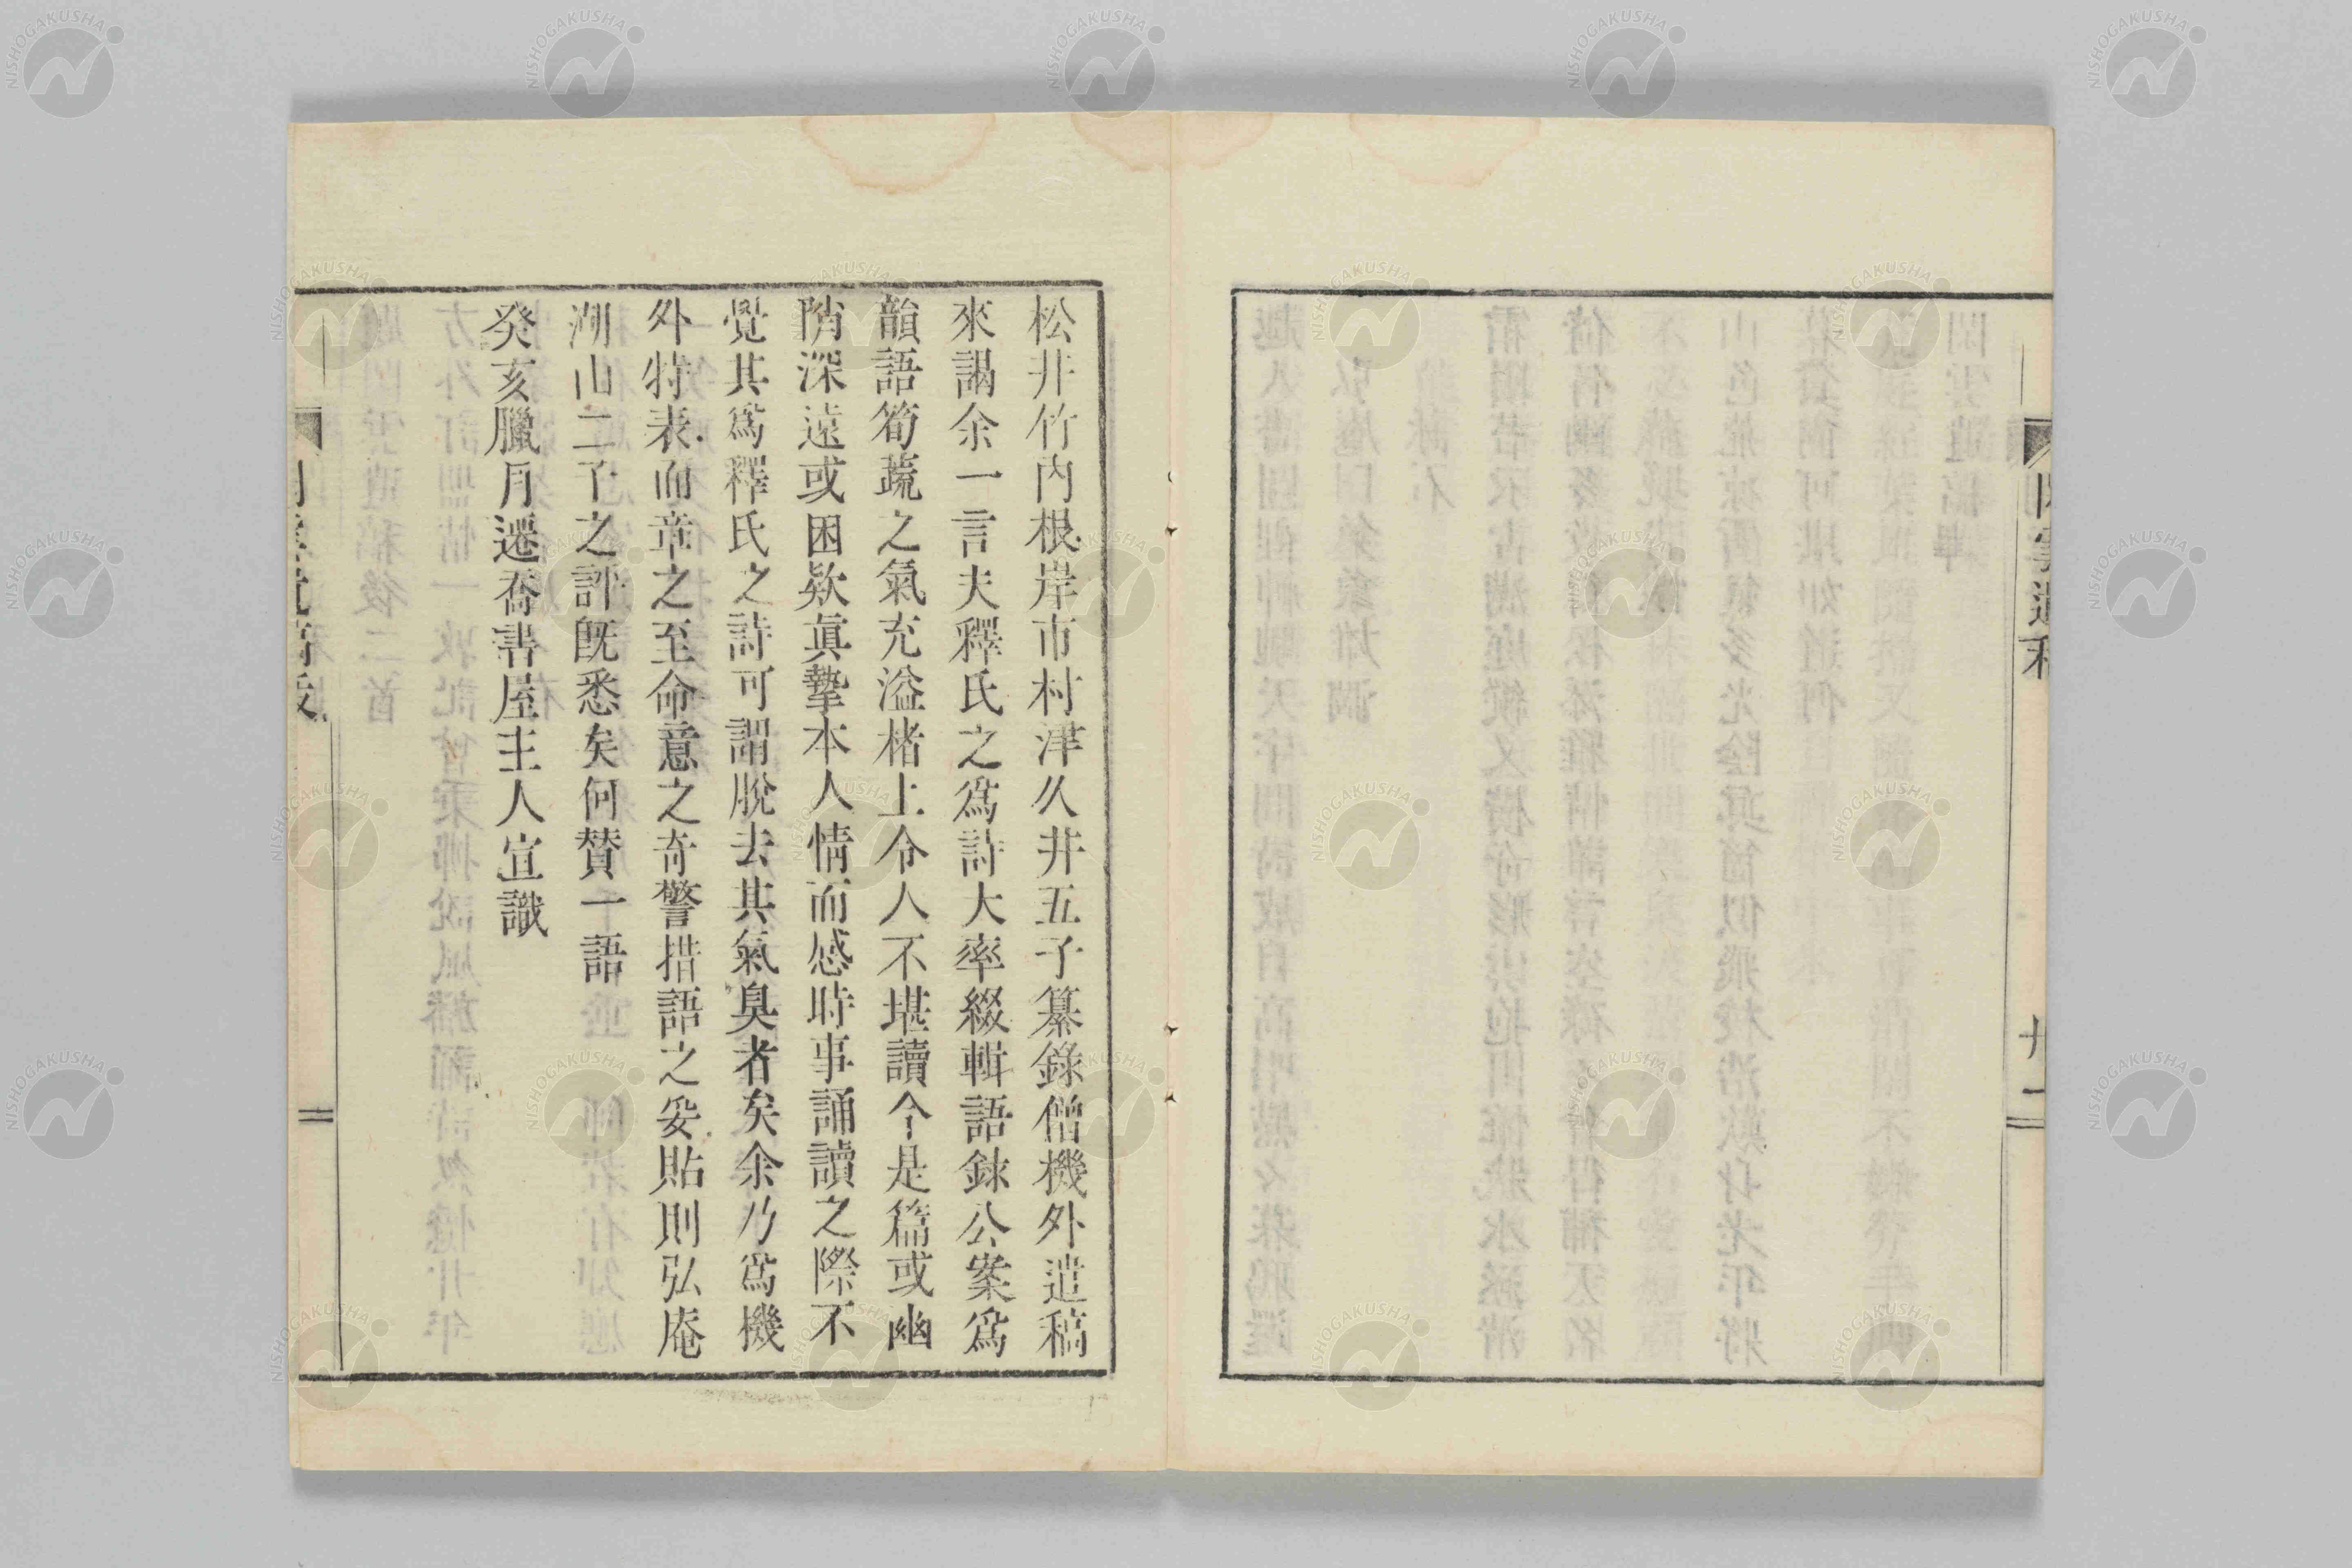 松井竹内根岸市村津久井五子纂錄僧機外遺稿
來謁余一言夫釋氏之爲詩大率綴輯語錄公案爲
韻語筍蔬之氣充溢楮上令人不堪讀今是篇或幽
階深遠或困欵眞摯本人情而感時事誦讀之際不
覺其爲釋氏之詩可謂脫去其氣臭者矣余乃爲機
外特表而章之至命意之奇警措語之妥貼則弘庵
湖山二子之評既悉矣何贊一語
癸亥臘月遷喬書屋主人宣識